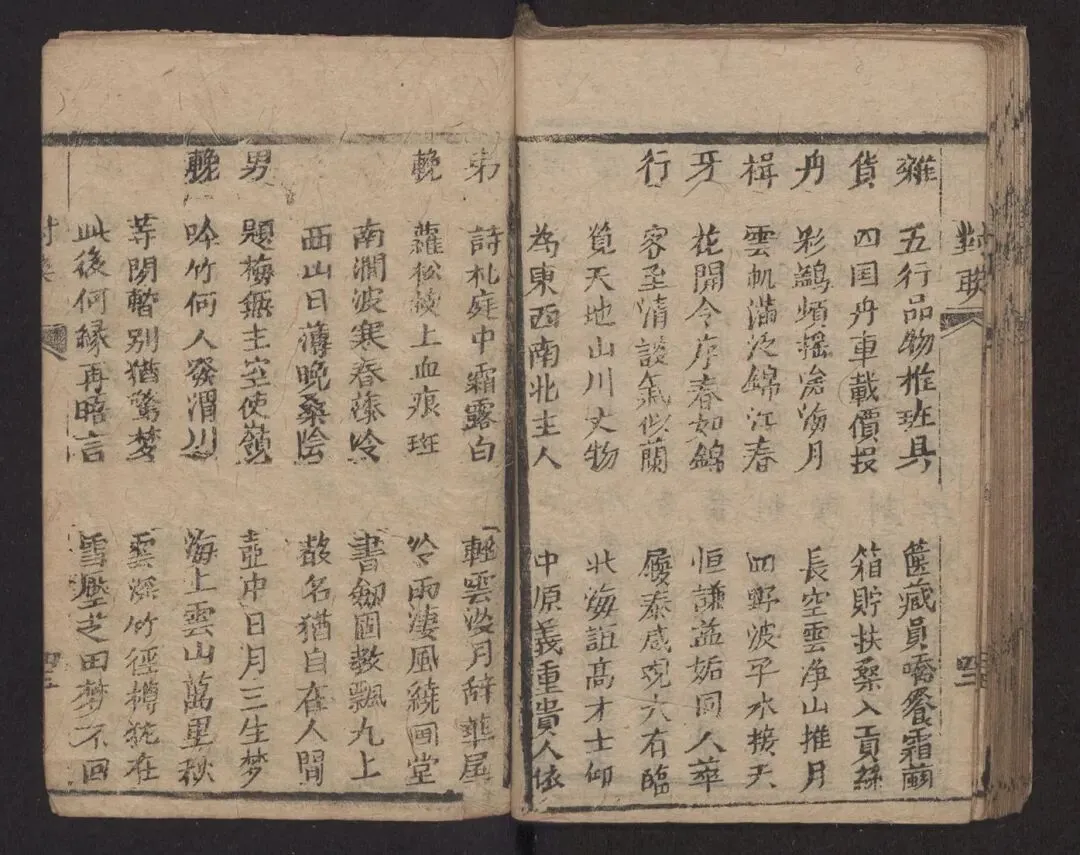 對聯
雜 五行品物推班具 篋藏員嶠餐霜繭
貨 四囯舟車載價投 箱貯扶桑入貢絲
舟 彩鷁頻搖滄海月 長空雲净山推月
楫 雲帆滿泛錦江春 四野波平水接天
牙 花開令序春如錦 恒謙益姤同人萃
行 客至清談氣似蘭 履泰咸觀大有臨
覽天地山川文物 北海誼高才士仰
為東西南北主人 中原義重貴人依
四二
弟 詩札庭中霜露白 輕雲汝月辞華屋
輓 蘿松枝上血痕班 冷雨凄風繞画堂
南澗波寒春藻冷 書劔圖教飄九上
西山日薄晚桑陰 故名猶自在人間
男 題梅無主空使嶺 壺中日月三生梦
輓 吟竹何人發渭川 海上雲山萬里秋
等閑暫别猶驚梦 雲深竹徑樽猶在
此後何緣再晤言 雪壓芝田梦不回